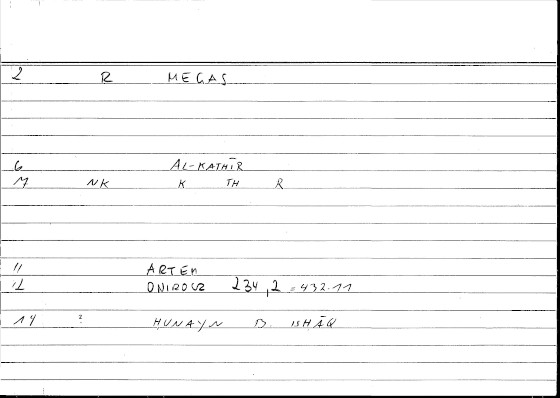 2 R MEGAS
6 AL-KATHĪR
M NK K TH R
11 ARTEM
12 ONIROCR 234,2 = 432.11
14 ? HUNAYN B. ISḤĀQ